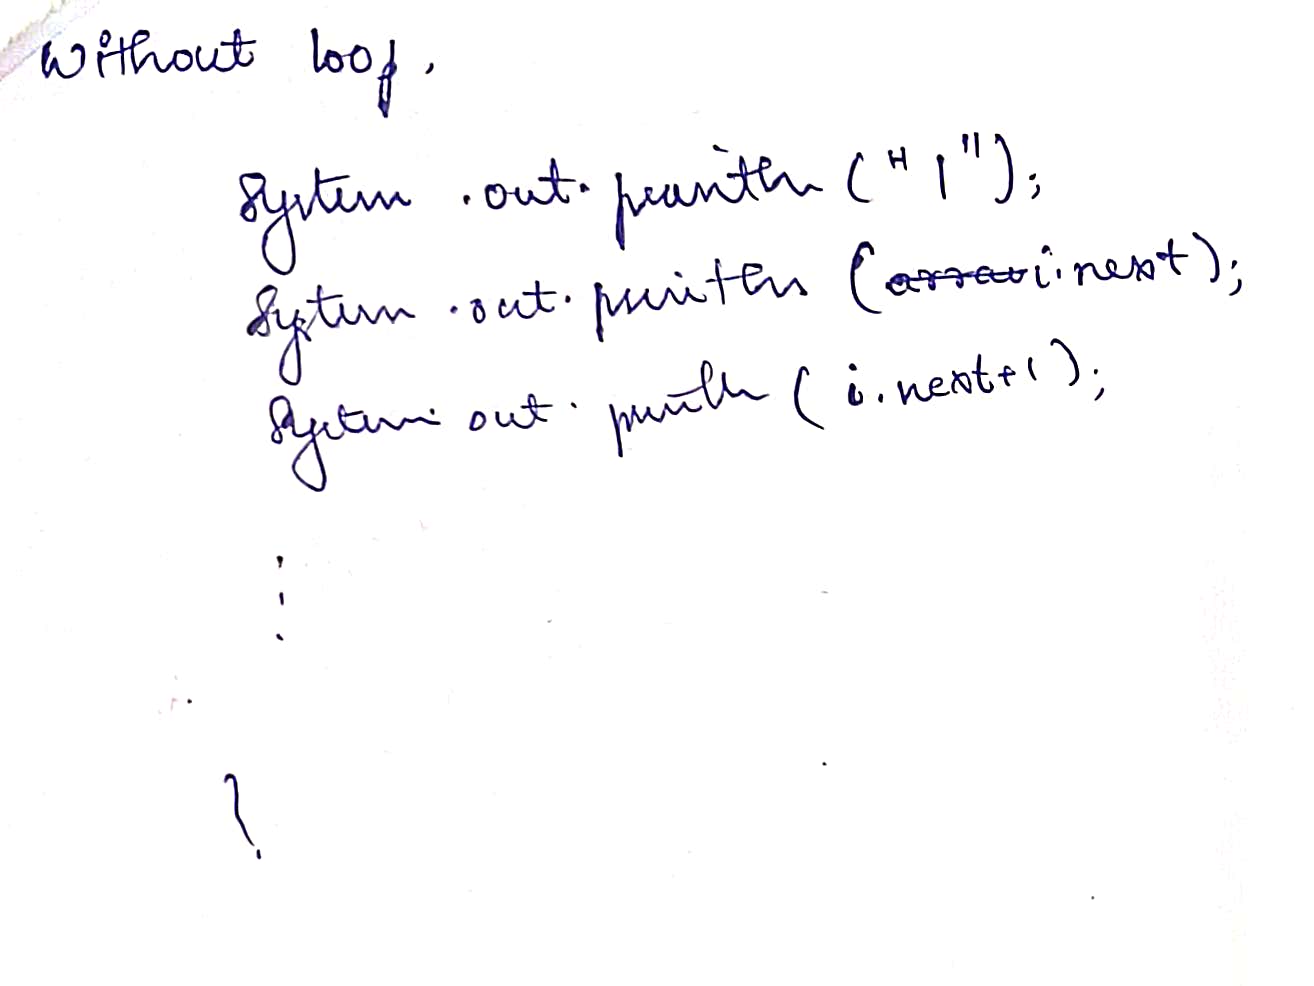 Without loop.
System.out.println ("1");
System.out.println (i.next);
System.out.println (i.next+1);
⋮
}